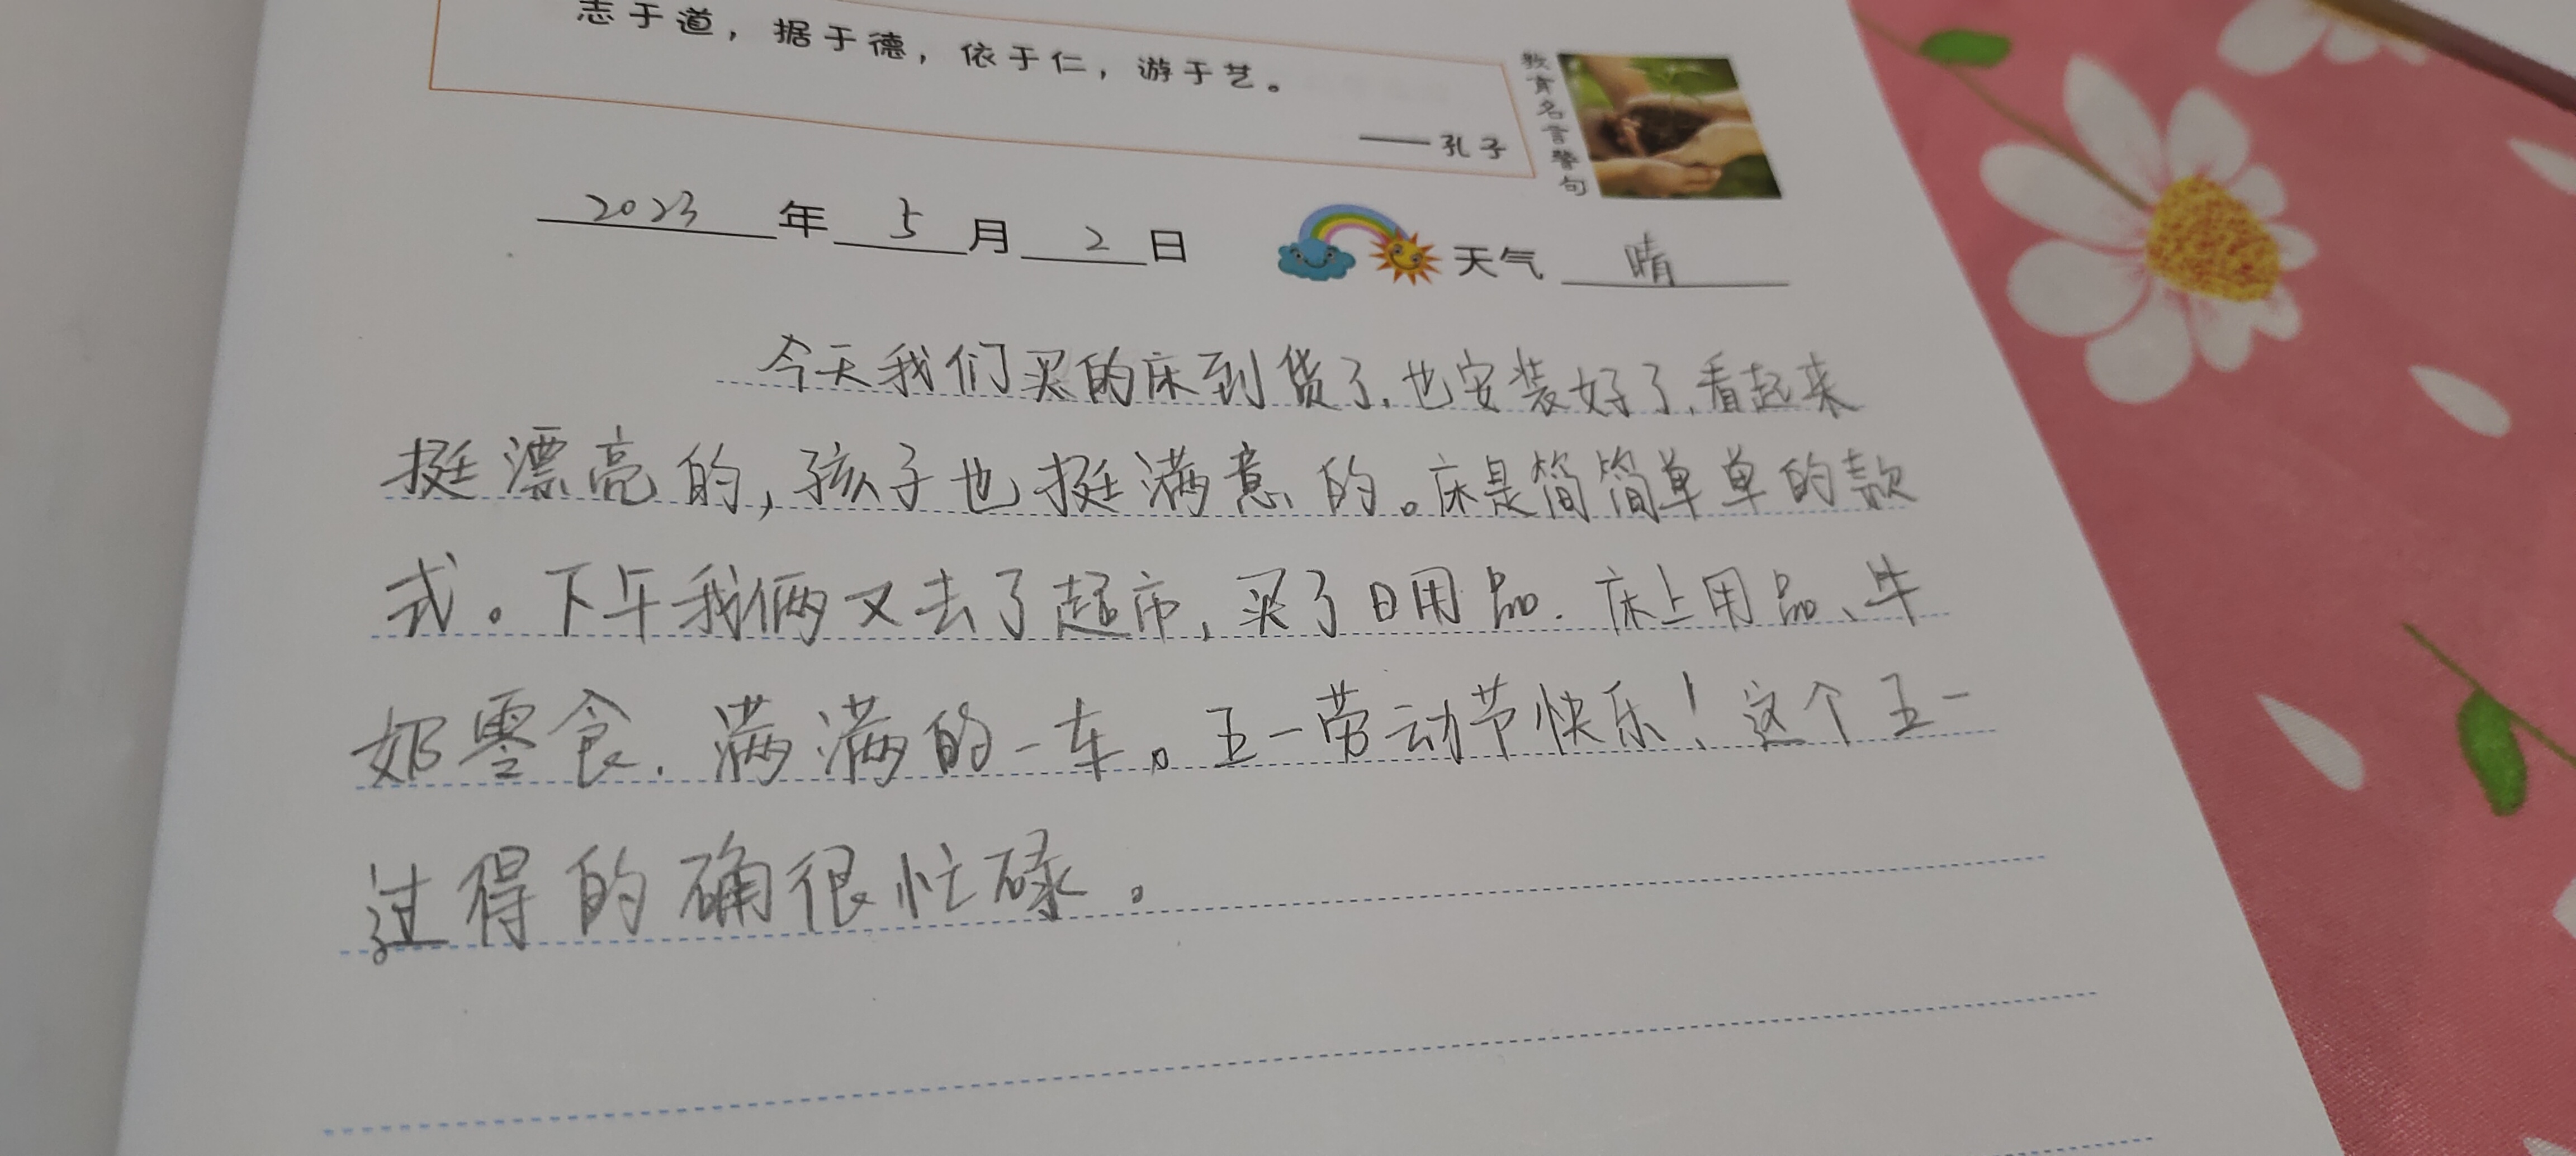 志于道，据于德，依于仁，游于艺。
——孔子
教育名言警句
2023年5月2日
天气 晴
今天我们买的床到货了，也安装好了，看起来
挺漂亮的，孩子也挺满意的。床是简简单单的款
式。下午我俩又去了超市，买了日用品．床上用品、牛
奶零食．满满的一车。五一劳动节快乐！这个五一
过得的确很忙碌。